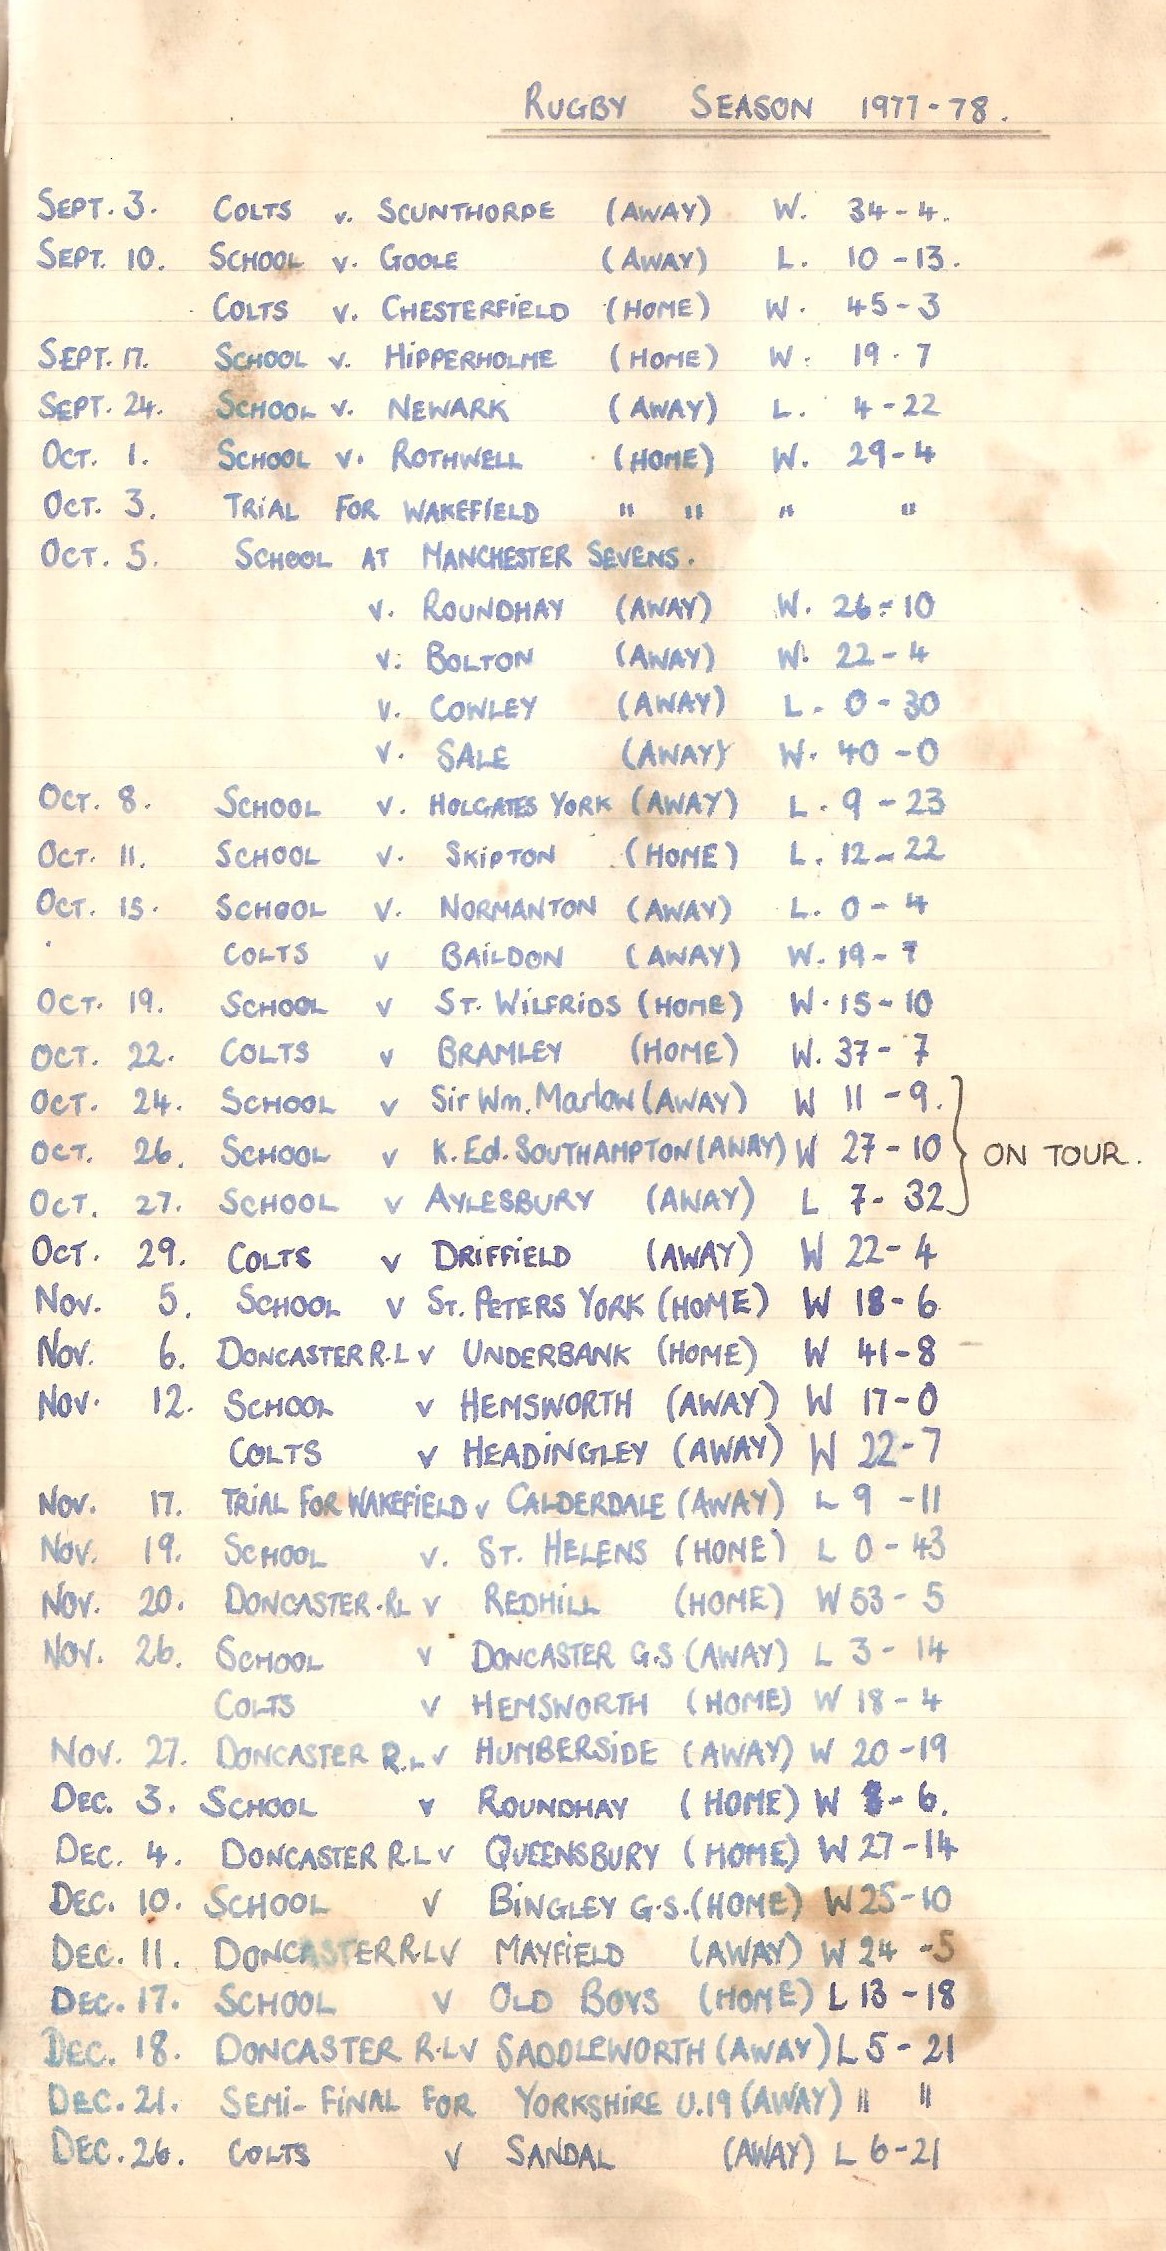 RUGBY SEASON 1977-78.
SEPT. 3. COLTS v. SCUNTHORPE (AWAY) W. 34-4.
SEPT. 10. SCHOOL v. GOOLE (AWAY) L. 10-13.
COLTS v. CHESTERFIELD (HOME) W. 45-3
SEPT. 17. SCHOOL v. HIPPERHOLME (HOME) W. 19.7
SEPT. 24. SCHOOL v. NEWARK (AWAY) L. 4-22
OCT. 1. SCHOOL v. ROTHWELL (HOME) W. 29-4
OCT. 3. TRIAL FOR WAKEFIELD " " " "
OCT. 5. SCHOOL AT MANCHESTER SEVENS.
v. ROUNDHAY (AWAY) W. 26-10
v. BOLTON (AWAY) W. 22-4
v. COWLEY (AWAY) L. 0-30
v. SALE (AWAY) W. 40-0
OCT. 8. SCHOOL v. HOLGATES YORK (AWAY) L. 9-23
OCT. 11. SCHOOL v. SKIPTON (HOME) L. 12-22
OCT. 15. SCHOOL v. NORMANTON (AWAY) L. 0-4
COLTS v BAILDON (AWAY) W. 19-7
OCT. 19. SCHOOL v ST. WILFRIDS (HOME) W. 15-10
OCT. 22. COLTS v BRAMLEY (HOME) W. 37-7
OCT. 24. SCHOOL v Sir Wm. Marlow (AWAY) W 11-9.
OCT. 26. SCHOOL v K. Ed. SOUTHAMPTON (AWAY) W 27-10 ON TOUR.
OCT. 27. SCHOOL v AYLESBURY (AWAY) L 7-32
OCT. 29. COLTS v DRIFFIELD (AWAY) W 22-4
NOV. 5. SCHOOL v ST. PETERS YORK (HOME) W 18-6
NOV. 6. DONCASTER R.L v UNDERBANK (HOME) W 41-8
NOV. 12. SCHOOL v HEMSWORTH (AWAY) W 17-0
COLTS v HEADINGLEY (AWAY) W 22-7
NOV. 17. TRIAL FOR WAKEFIELD v CALDERDALE (AWAY) L 9-11
NOV. 19. SCHOOL v. ST. HELENS (HOME) L 0-43
NOV. 20. DONCASTER.RL v REDHILL (HOME) W 53-5
NOV. 26. SCHOOL v DONCASTER G.S (AWAY) L 3-14
COLTS v HEMSWORTH (HOME) W 18-4
NOV. 27. DONCASTER R.L v HUMBERSIDE (AWAY) W 20-19
DEC. 3. SCHOOL v ROUNDHAY (HOME) W 8-6.
DEC. 4. DONCASTER R.L v QUEENSBURY (HOME) W 27-14
DEC. 10. SCHOOL v BINGLEY G.S. (HOME) W 25-10
DEC. 11. DONCASTER R.L V MAYFIELD (AWAY) W 24-5
DEC. 17. SCHOOL v OLD BOYS (HOME) L 13-18
DEC. 18. DONCASTER R.L V SADDLEWORTH (AWAY) L 5-21
DEC. 21. SEMI-FINAL FOR YORKSHIRE U.19 (AWAY) " "
DEC. 26. COLTS v SANDAL (AWAY) L 6-21